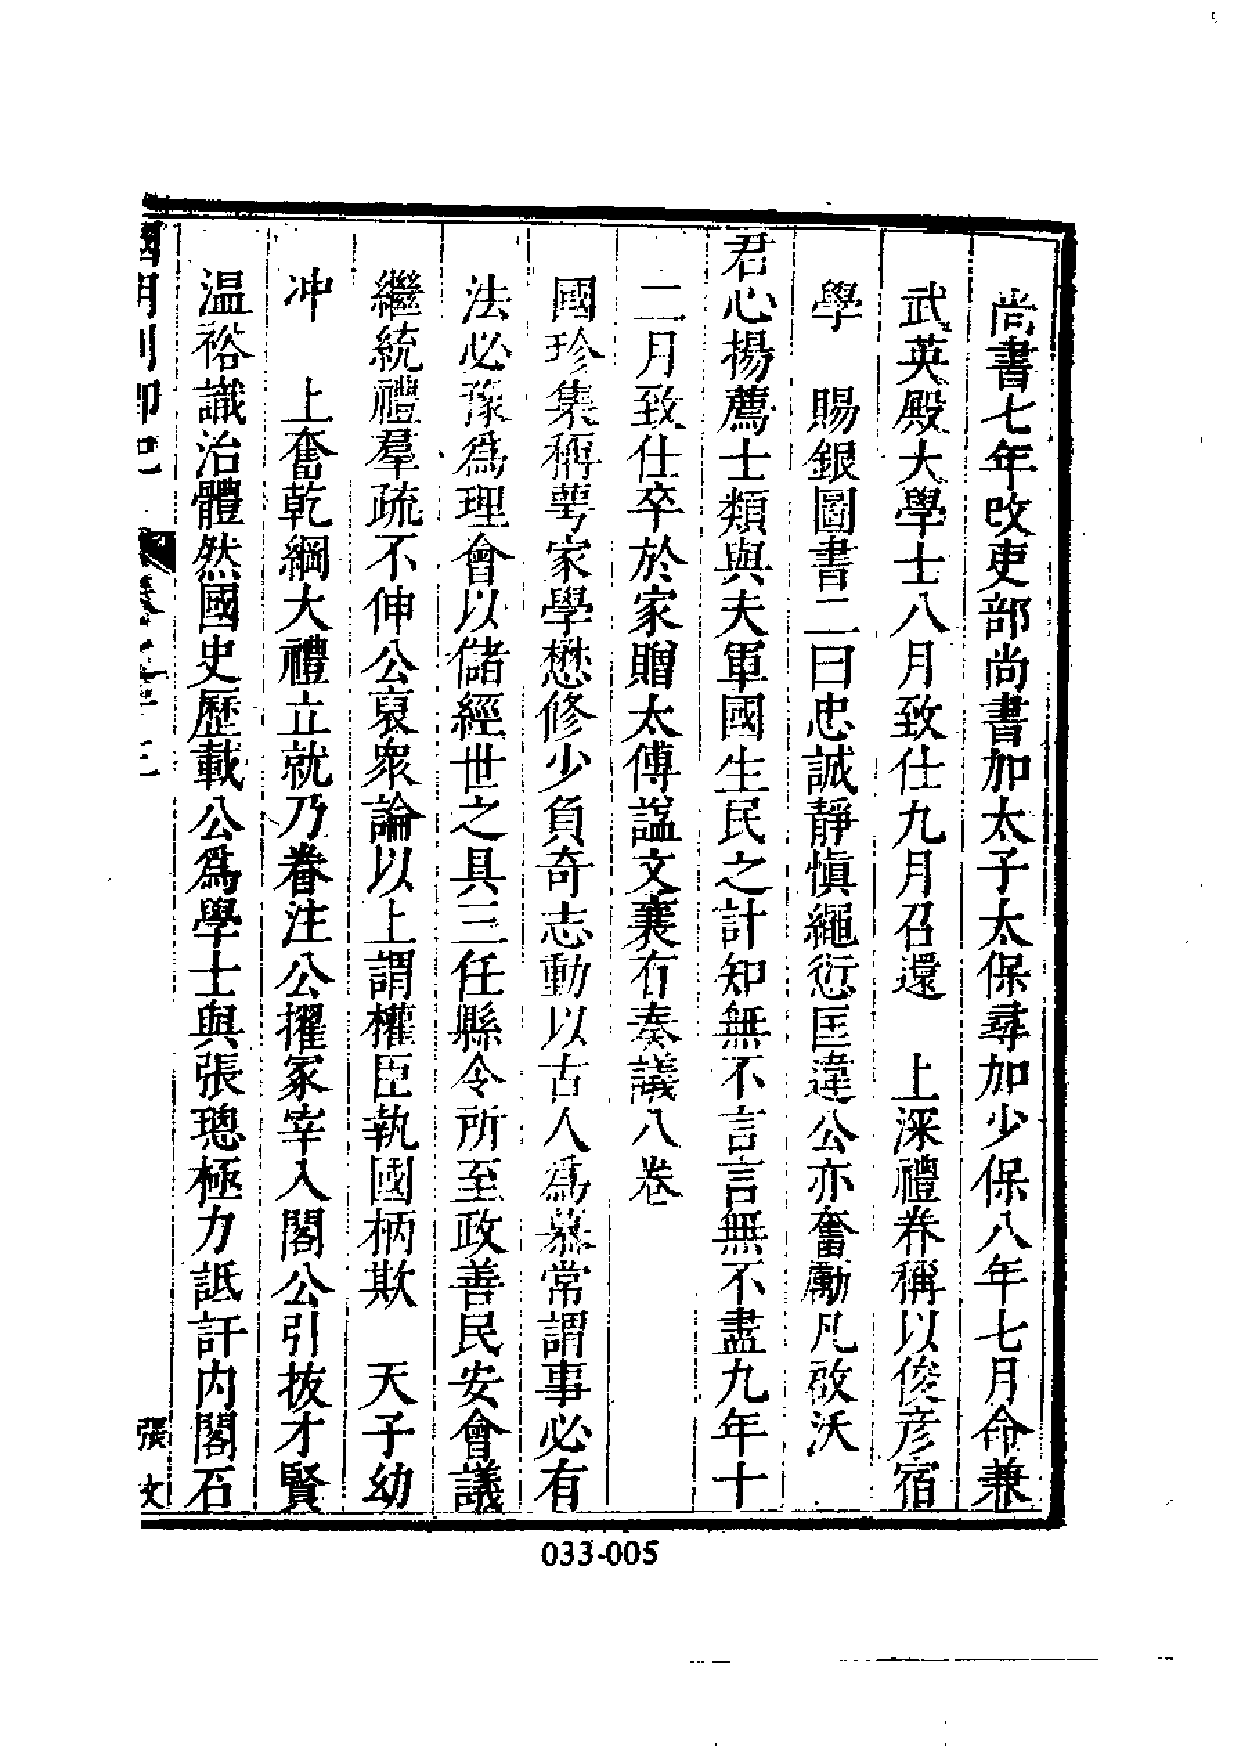 尚書七年改吏部尚書加太子太保尋加少保八年七月命兼
武英殿大學士八月致仕九月召還　上深禮眷稱以俊彥宿
學　賜銀圖書二曰忠誠靜慎繩愆匡違公亦奮勵凡啟沃
君心揚薦士類與夫軍國生民之計知無不言言無不盡九年十
二月致仕卒於家贈太傅諡文襄有奏議八卷
國珍集稱萼家學懋修少負奇志動以古人爲慕常謂事必有
法必豫爲理會以儲經世之具三任縣令所至政善民安會議
繼統禮羣疏不伸公裒衆論以上謂權臣執國柄欺　天子幼
冲　上奮乾綱大禮立就乃眷注公擢冢宰入閣公引拔才賢
温裕識治體然國史歷載公爲學士與張璁極力詆訐内閣石
卷之三十三
張文
033-005